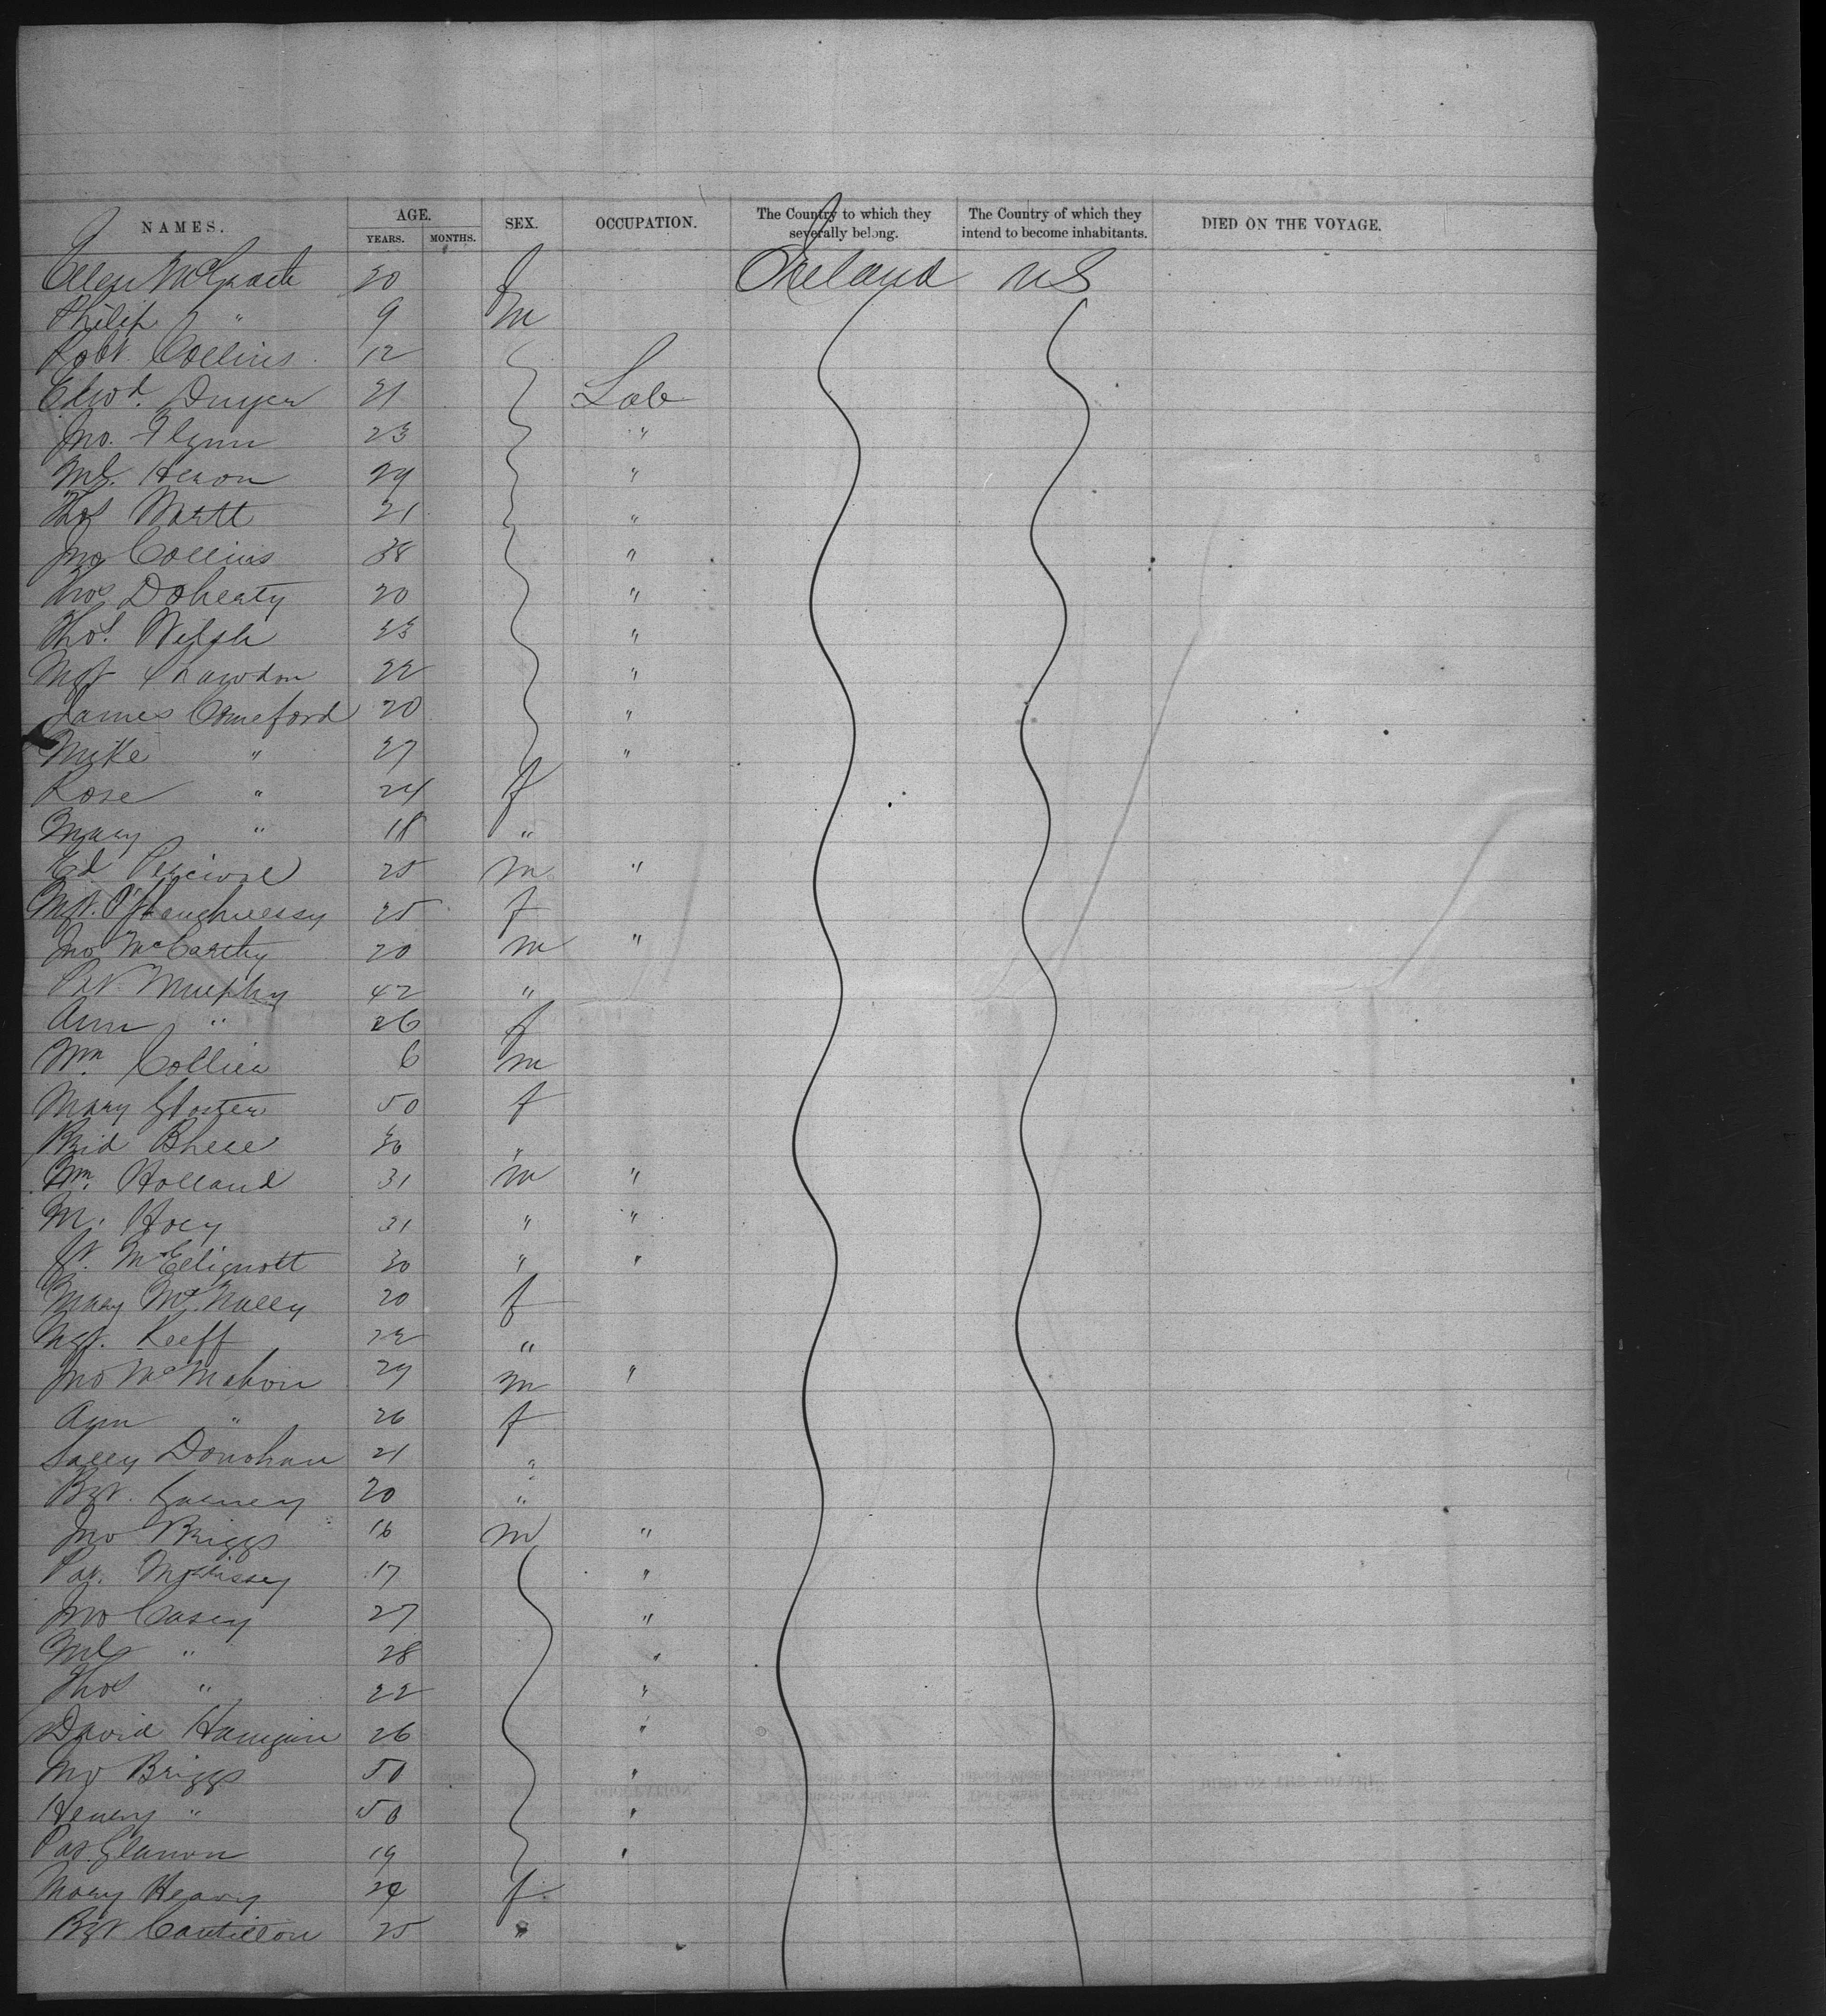 NAMES. AGE. SEX. OCCUPATION. The Country to which they severally belong. The Country of which they intend to become inhabitants. DIED ON THE VOYAGE.
YEARS. MONTHS.
Ellen McGrath 20 f Ireland US
Philip " 9 m
Robt. Collins 12
Edwd. Dwyer 21 Lab
Jno. Flynn 23 "
Ml. Heron 29 "
Thos 21 "
Jno Collins 38 "
Thos Doherty 20 "
Thos. Welsh 23 "
Mgt 22 "
James Comeford 20 "
Mike " 27 "
Rose " 24 f
Mary " 18 "
Ed Percival 25 m "
Mgt. O'Shaughnessy 25 f
Jno McCarthy 20 m "
Pat. Murphy 42 "
Ann " 26 f
Wm Collier 6 m
Mary Gloster 50 f
Brid 30 "
Wm. Holland 31 m "
M. Hoey 31 " "
McElignott 30 " "
Mary McNally 20 f
Mgt. Keeff 22 "
Jno McMahon 29 m "
Ann " 26 f
Sally Donohue 21 "
Bgt. 20 "
Jno Briggs 16 m "
Pat. Morrissey 17 "
Jno Casey 27 "
Ml " 28 "
Thos " 22 "
David 26 "
Jno Briggs 50 "
Henry " 50 "
Pat. Glanon 19 "
Mary Heavy 24 f
Bgt Cantillon 25 "